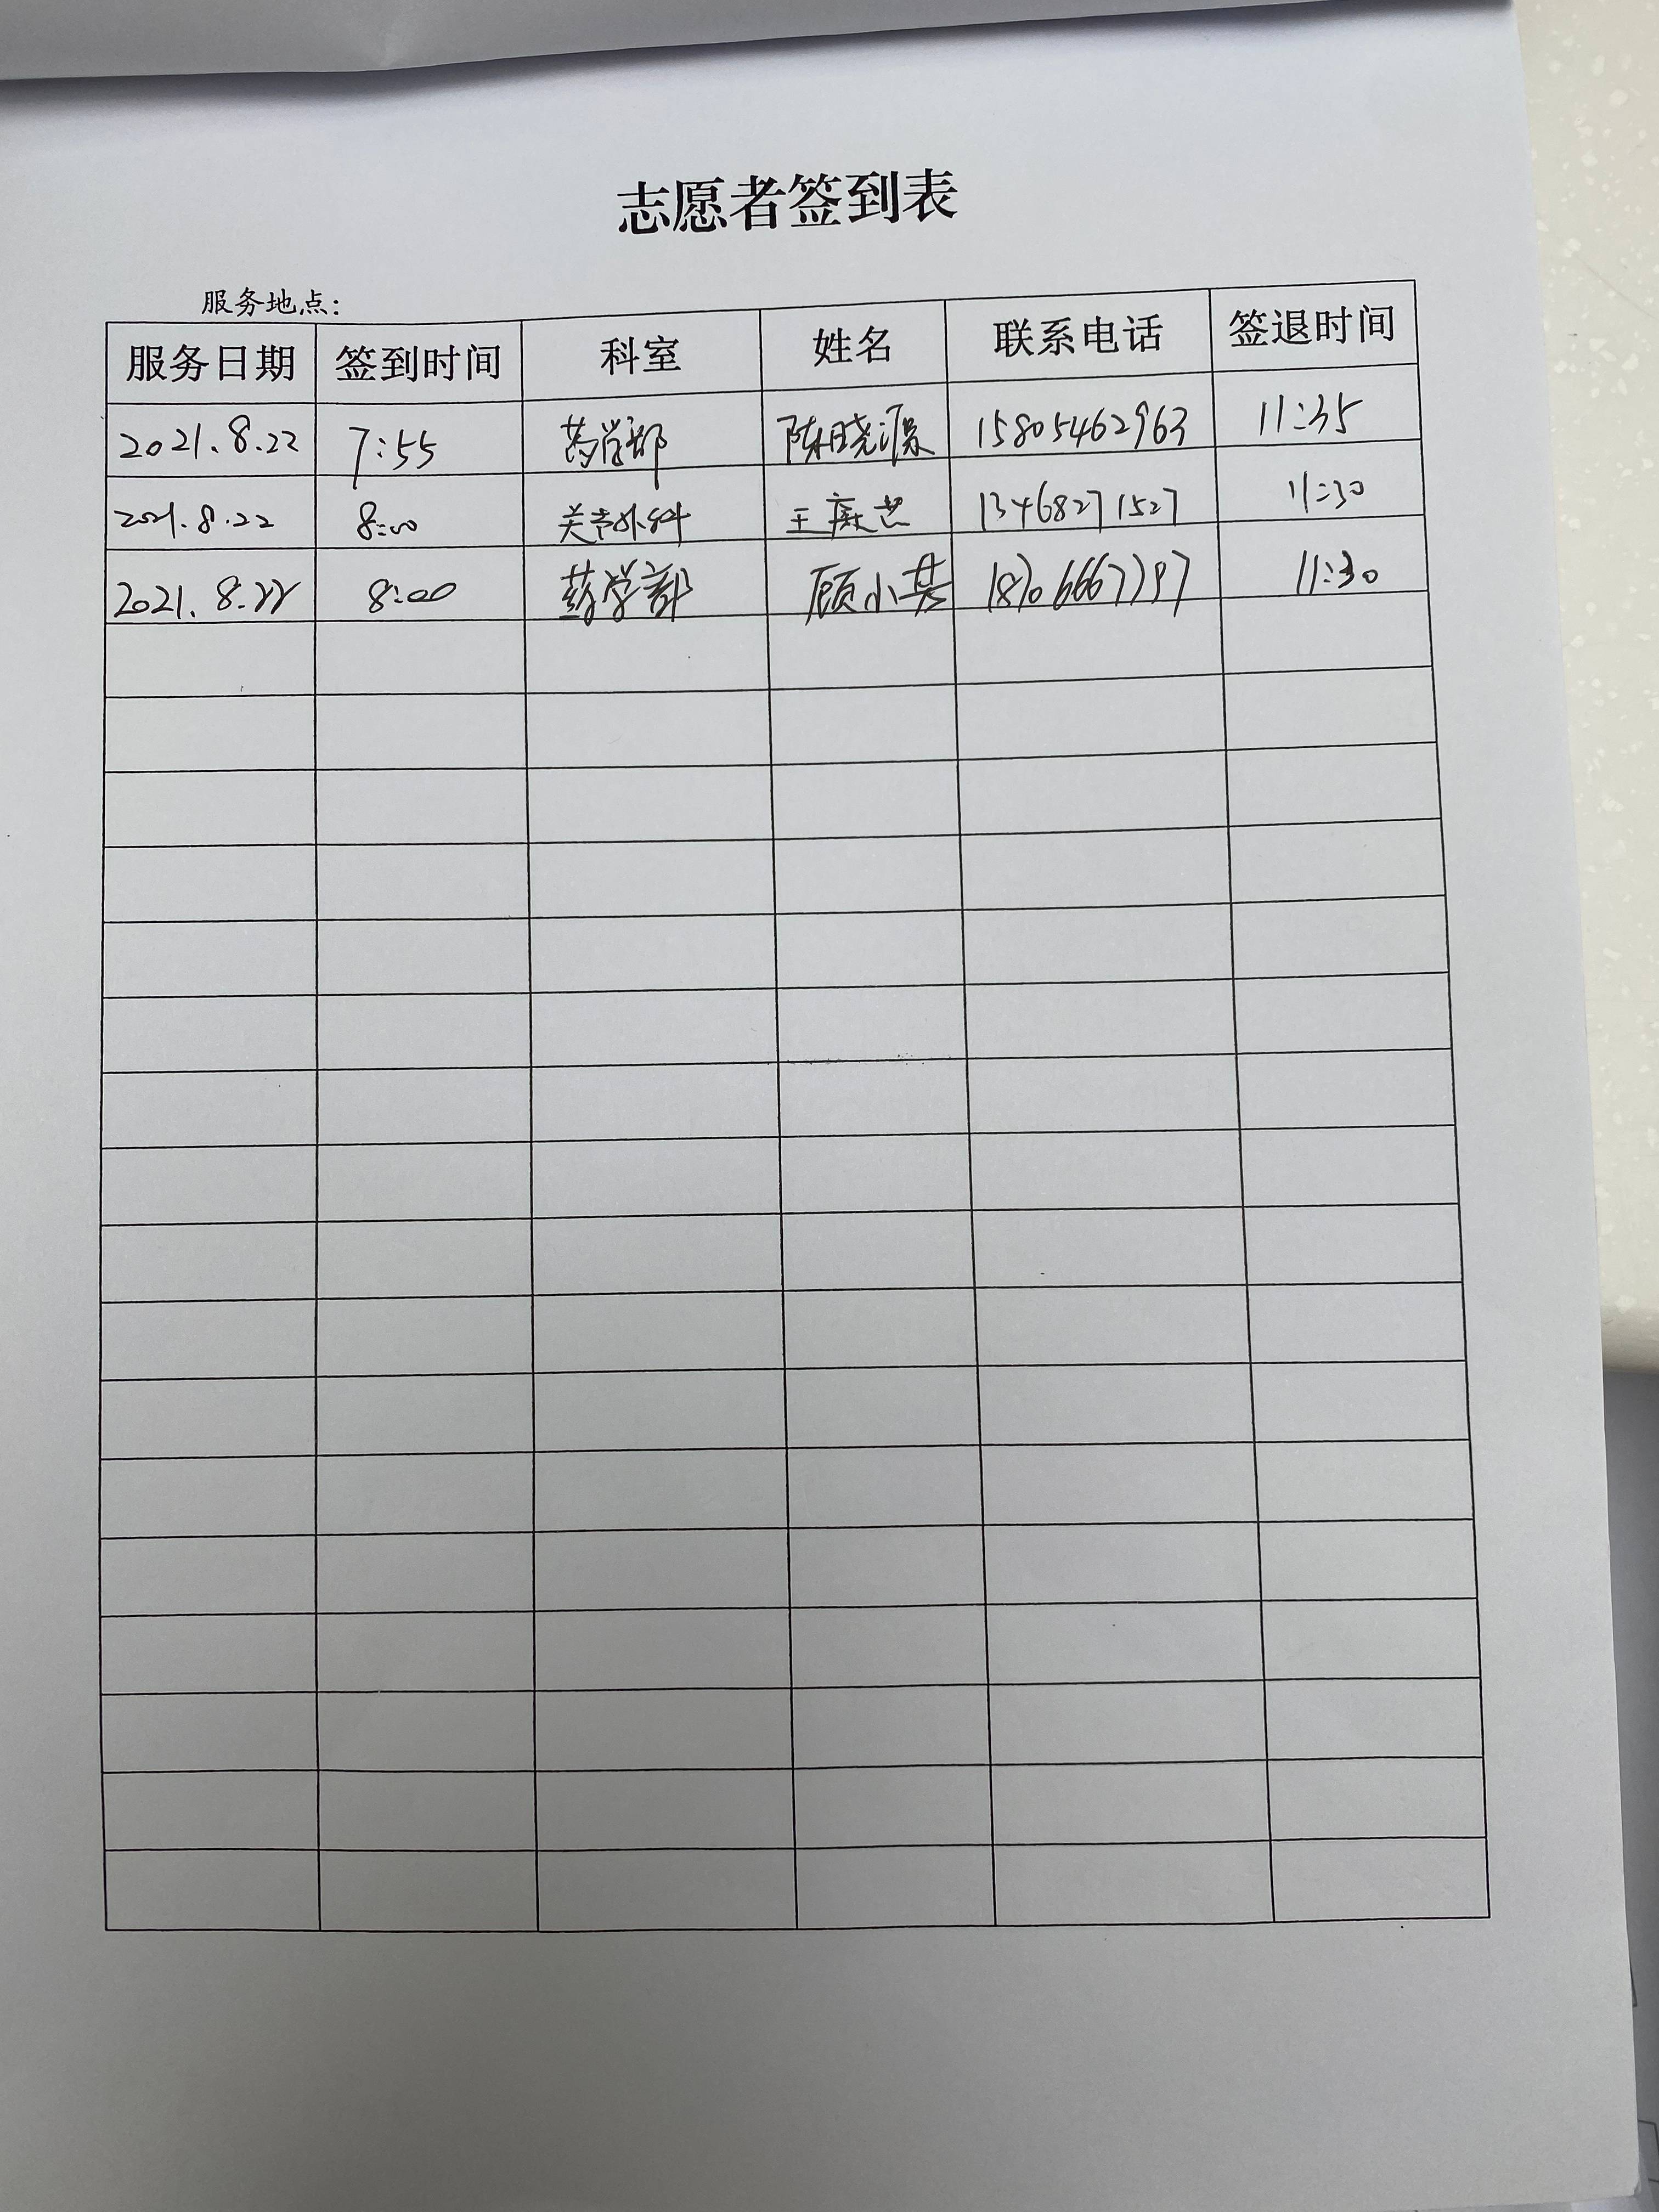 志愿者签到表
服务地点：
服务日期 签到时间 科室 姓名 联系电话 签退时间
2021.8.22 7:55 药学部 陈晓源 15805462963 11:35
2021.8.22 8:00 关节外科 王 13468271527 11:30
2021.8.22 8:00 药学部 顾小 11:30